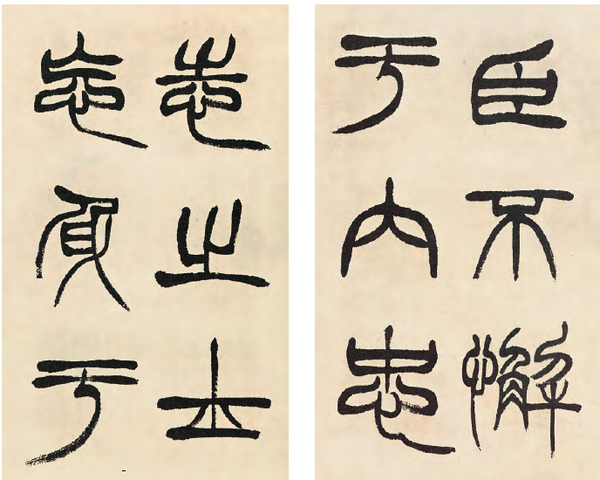 臣不懈
于内忠
志之士
忘身于